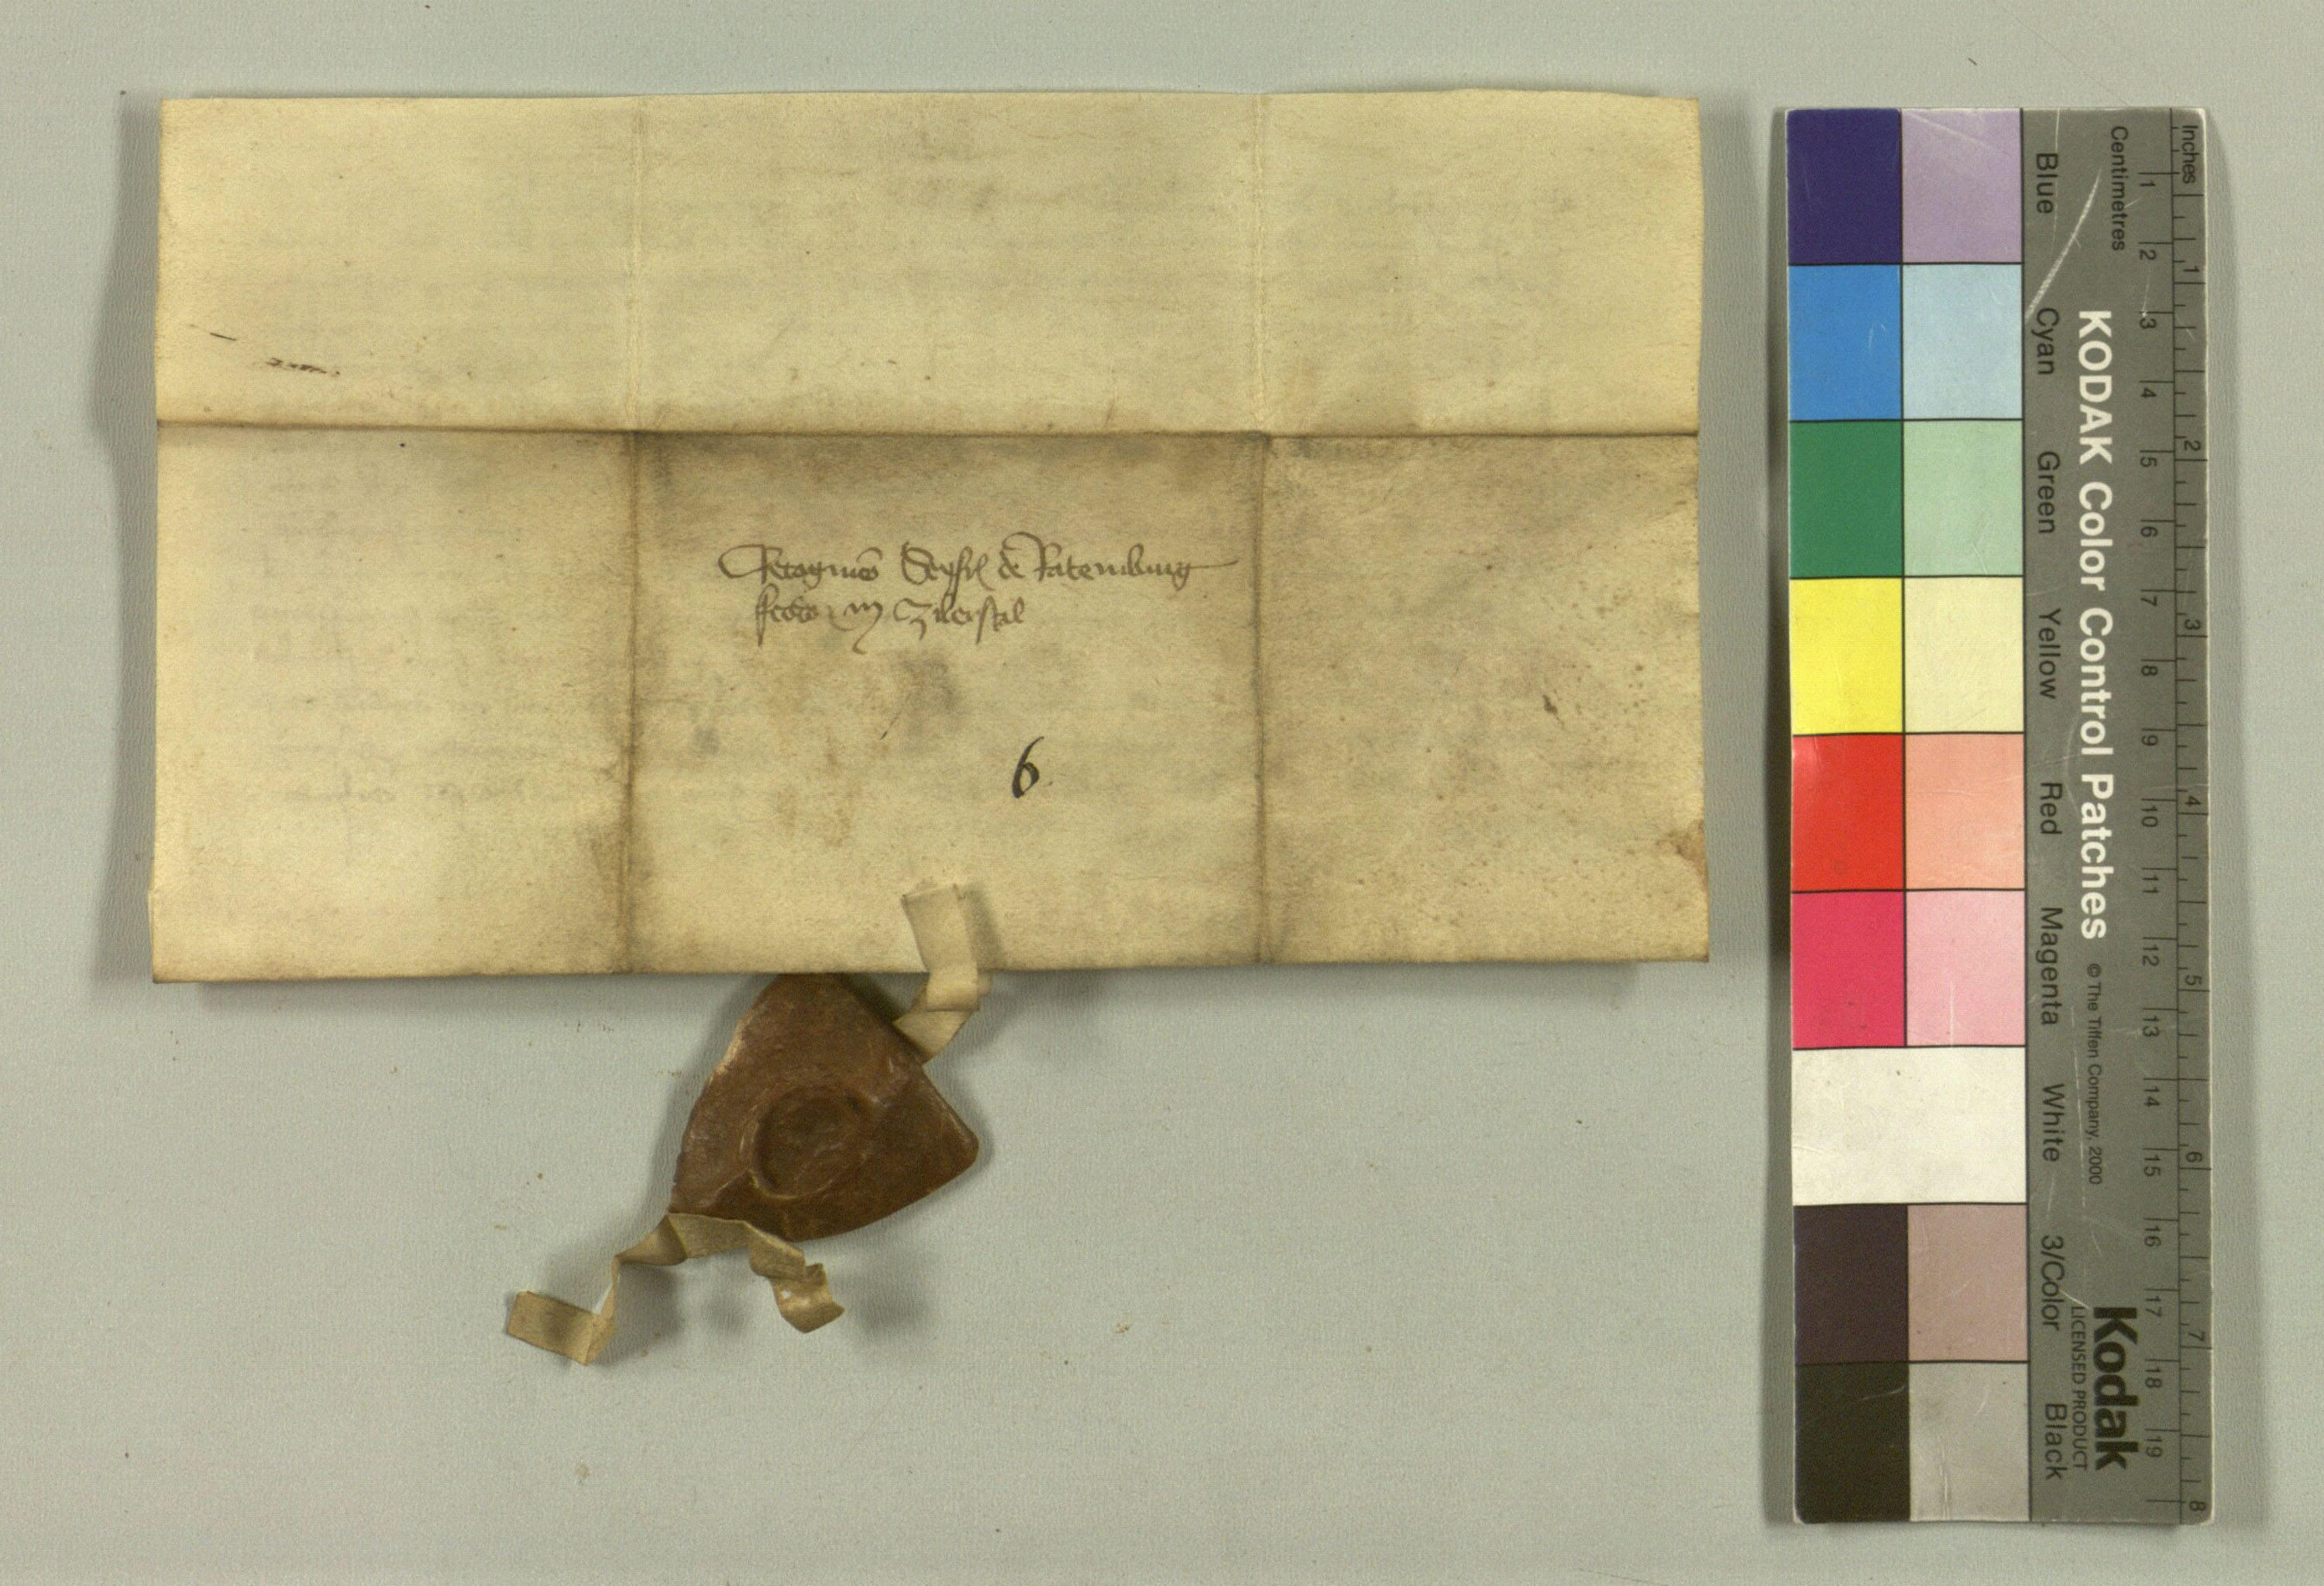 Recognicō Seyfrid de Ratemburg
sedes in Zilerstal
6
Inches
Centimetres
1 2 3 4 5 6 7 8 9 10 11 12 13 14 15 16 17 18 19
1 2 3 4 5 6 7 8
KODAK Color Control Patches
© The Tiffen Company, 2000
Kodak
LICENSED PRODUCT
Blue Cyan Green Yellow Red Magenta White 3/Color Black